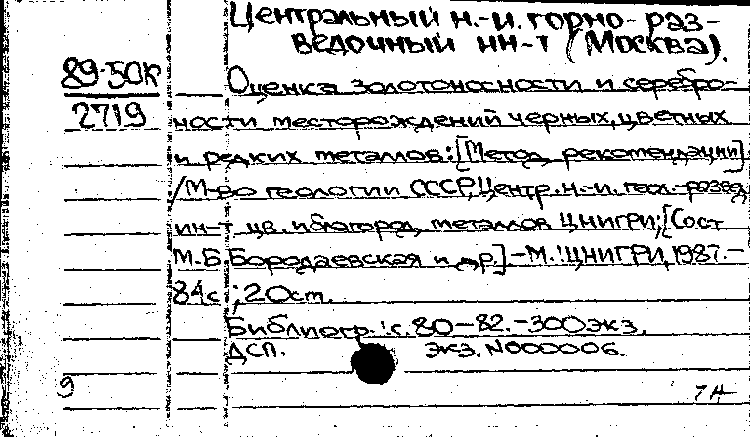 Центральный н.-и. горно-раз-
ведочный ин-т (Москва).
89-50К
2719
Оценка золотоносности и серебро-
ности месторождений черных, цветных
и редких металлов: [Метод. рекомендации]
/М-во геологии СССР, Центр. н.-и. геол.-развед
ин-т цв. и благород. металлов ЦНИГРИ; [Сост
М.Б. Бородаевская и др.] - М.: ЦНИГРИ, 1987. -
84с ; 20см.
Библиогр.: с. 80-82. - 300 экз.
ДСП. экз. N000006.
9